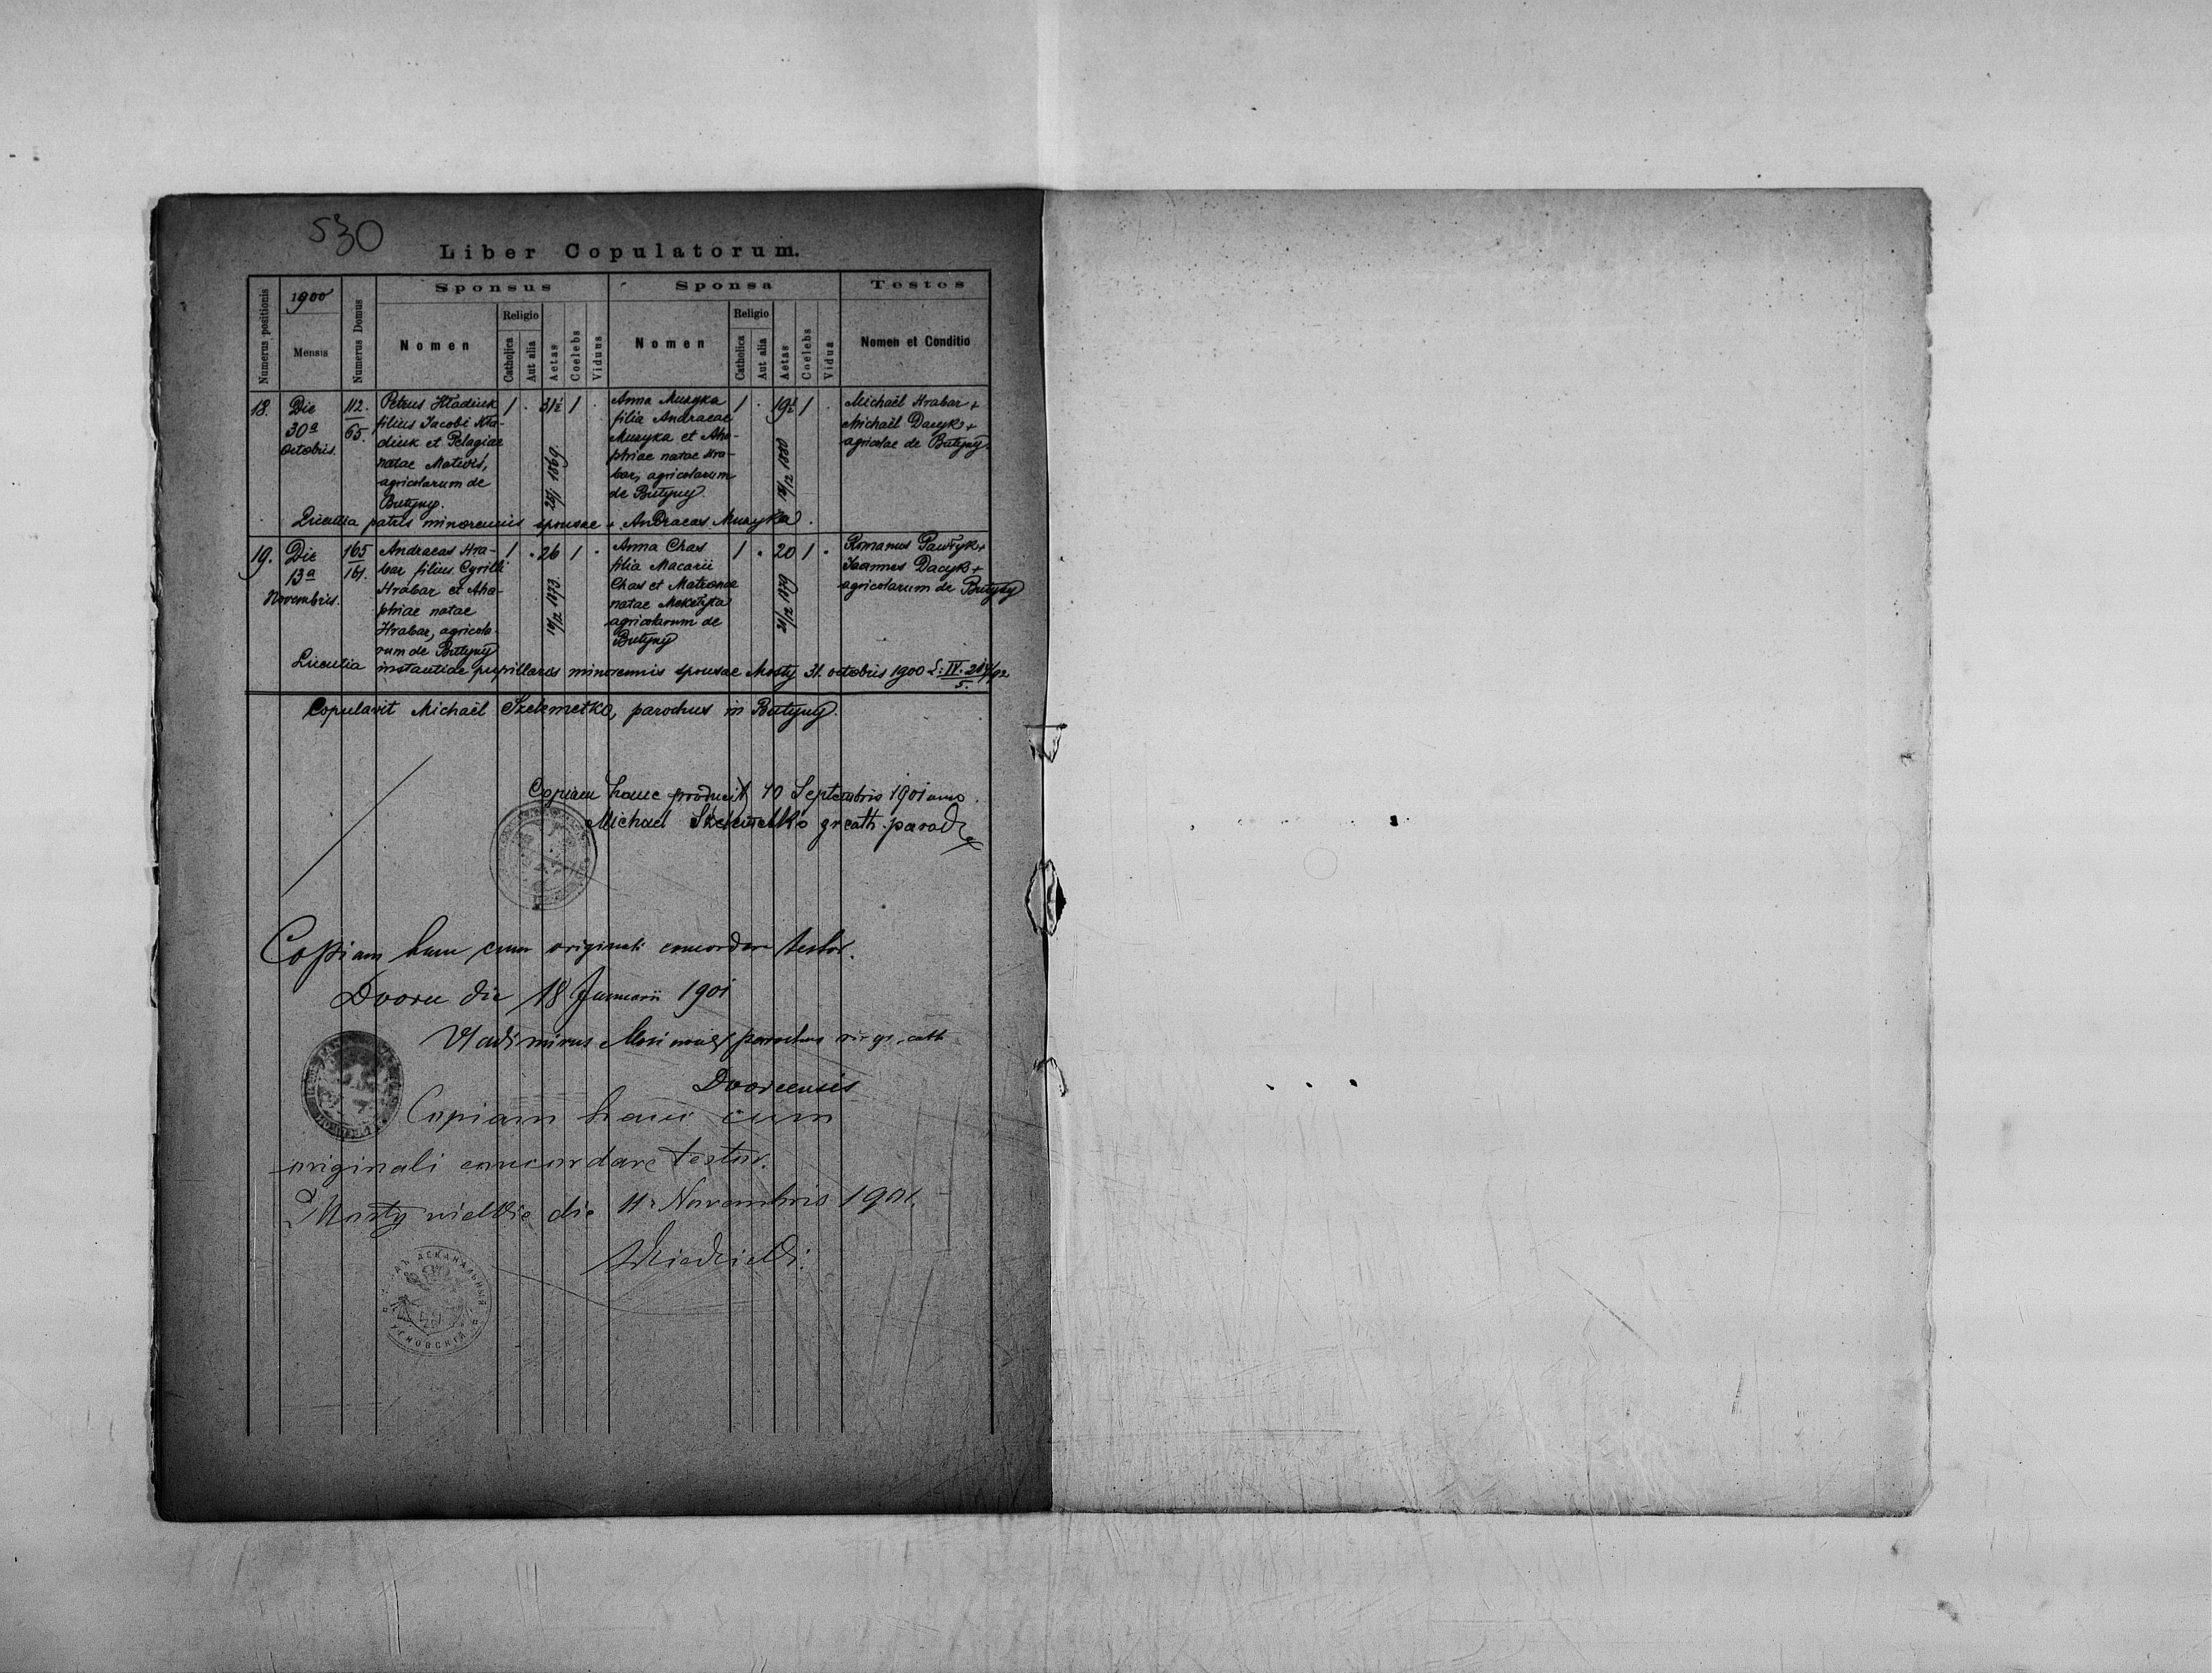 530
Liber Copulatorum.
Numerus positionis
1900
Mensis
Numerus Domus
Sponsus
Nomen
Religio
Catholica
Aut alia
Aetas
Coelebs
Viduus
Sponsa
Nomen
Religio
Catholica
Aut alia
Aetas
Coelebs
Vidua
Testes
Nomen et Conditio
18.
Die
30ª
Octobris.
112.
65.
Petrus Hładiuk
filius Jacobi Hła-
diuk et Pelagiae
natae
agricolarum de
Butyny.
1 . 31½ 1 .
1869
Anna Muzyka
filia Andraeae
Muzyka et Aha-
phiae natae Hra-
bar, agricolarum
de Butyny.
1 . 19½ 1 .
1880
Michaël Hrabar +
Michaël Dacyk +
agricolae de Butyny.
Licentia patris minorennis sponsae + Andraeas Muzyka.
19.
Die
13ª
Novembris.
165
161.
Andraeas Hra-
bar filius Cyrilli
Hrabar et Aha-
phiae natae
Hrabar, agricola-
rum de Butyny
1 . 26 1 .
1873
Anna Chas
filia Macarii
Chas et Matronae
natae
agricolarum de
Butyny
1 . 20 1 .
1879
Romanus Pawłyk +
Joannes Dacyk +
agricolarum de Butyny
Licentia instantiae pupillaris minorennis sponsae Mosty 31. octobris 1900 L: IV.
5.
Copulavit Michaël Szełemetko, parochus in Butyny.
Copiam hanc producit 10 Septembris 1901 anno.
Michael Szełemetko gr cath. paroch
Copiam hanc cum originali concordare testor.
Dvorce die 18 Januarii 1901
Vladimirus parochus gr. cath
Dvorcensis
Copiam hanc cum
originali concordare testor.
Mosty wielkie die 11 Novembris 1901.
ДЕКАНАЛЬНЫЙ